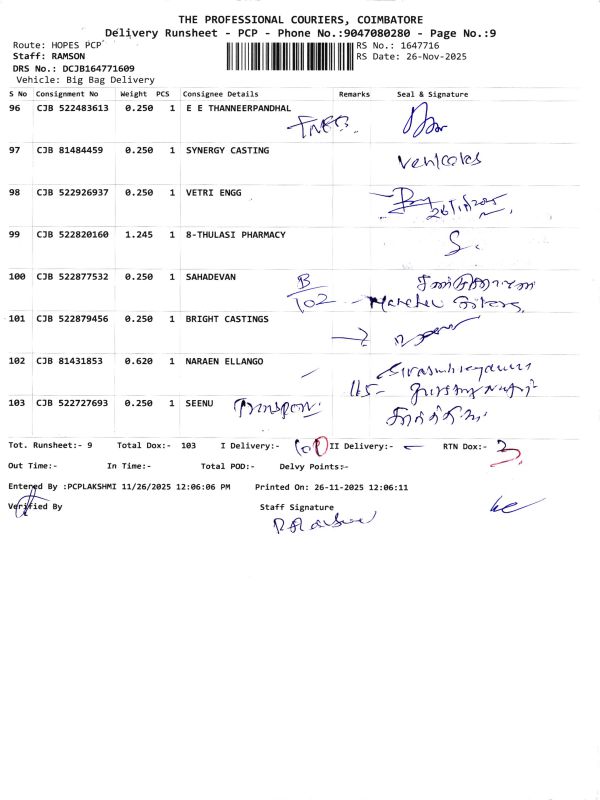 THE PROFESSIONAL COURIERS, COIMBATORE
Delivery Runsheet - PCP - Phone No.:9047080280 - Page No.:9
Route: HOPES PCP
RS No.: 1647716
Staff: RAMSON
RS Date: 26-Nov-2025
DRS No.: DCJB164771609
Vehicle: Big Bag Delivery
S No Consignment No Weight PCS Consignee Details Remarks Seal & Signature
96 CJB 522483613 0.250 1 E E THANNEERPANDHAL
97 CJB 81484459 0.250 1 SYNERGY CASTING
98 CJB 522926937 0.250 1 VETRI ENGG
26/11/2025
99 CJB 522820160 1.245 1 8-THULASI PHARMACY
S.
100 CJB 522877532 0.250 1 SAHADEVAN
B
102
101 CJB 522879456 0.250 1 BRIGHT CASTINGS
102 CJB 81431853 0.620 1 NARAEN ELLANGO
115-
103 CJB 522727693 0.250 1 SEENU
Tot. Runsheet:- 9 Total Dox:- 103 I Delivery:- 101 II Delivery:- - RTN Dox:- 2
Out Time:- In Time:- Total POD:- Delvy Points:-
Entered By :PCPLAKSHMI 11/26/2025 12:06:06 PM Printed On: 26-11-2025 12:06:11
Verified By Staff Signature